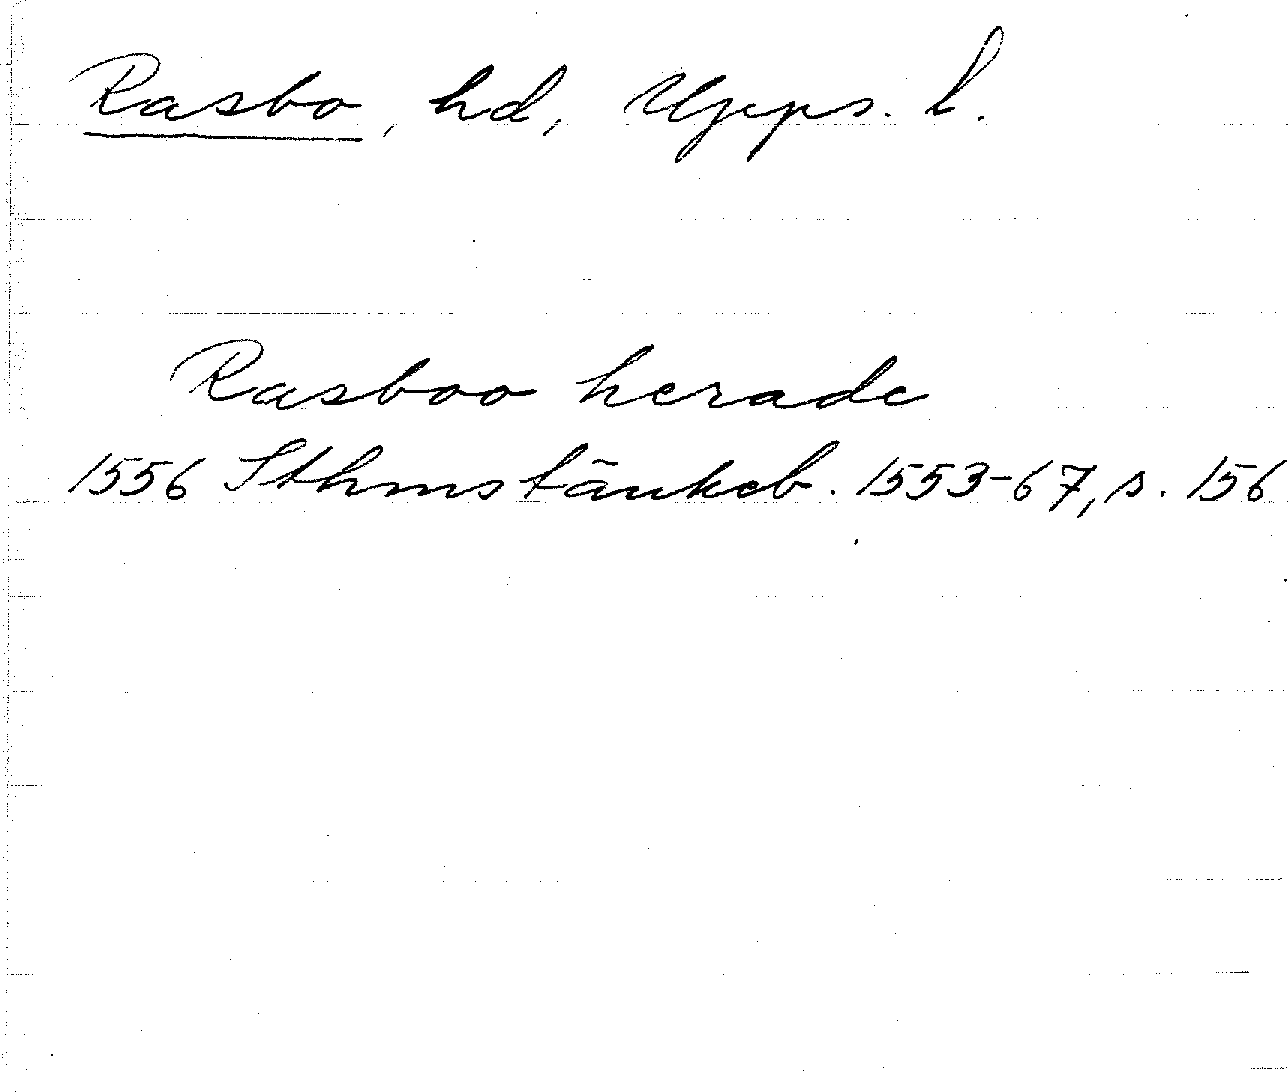 Rasbo, hd, Upps. l.
Rasboo herade
1556 Sthms tänkeb. 1553-67, s. 156